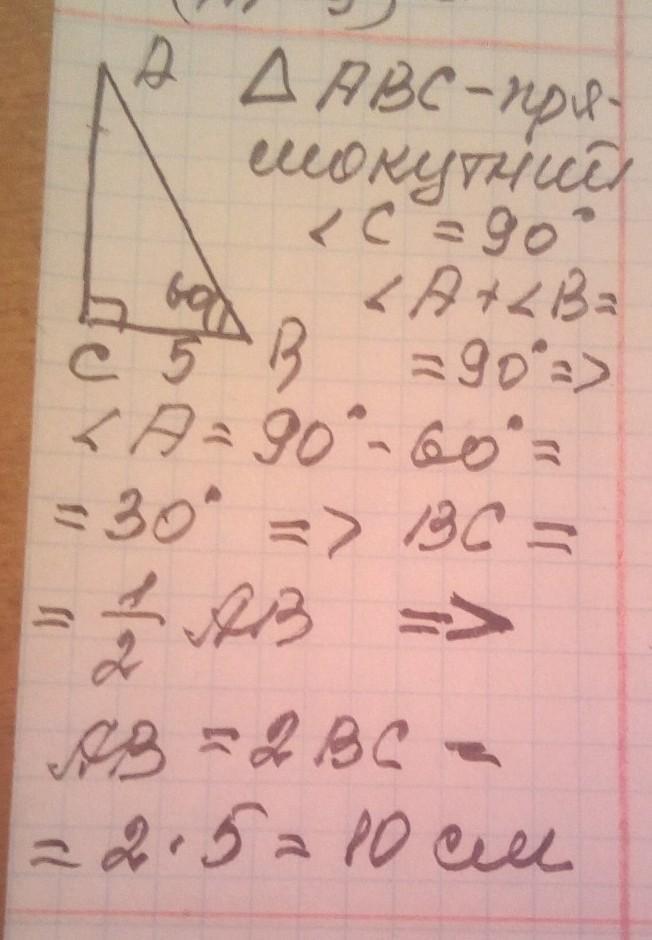 A
△ ABC - пря-
мокутний
< C = 90°
60°
< A + < B =
C 5 B
= 90° =>
< A = 90° - 60° =
= 30° => BC =
= 1/2 AB =>
AB = 2 BC -
= 2 · 5 = 10 см